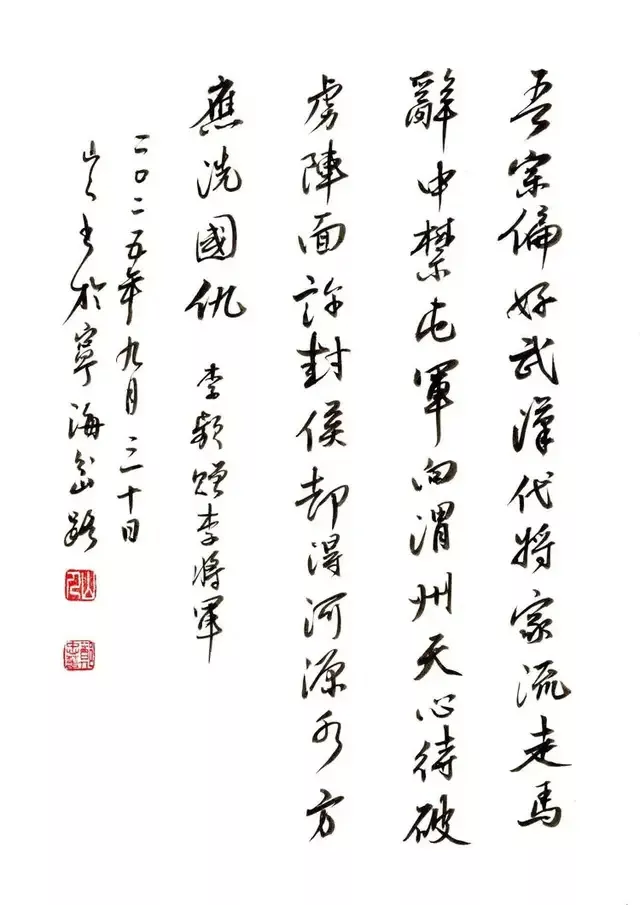 吾宗偏好武漢代將家流走馬
辭中禁屯軍向渭州天心待破
虜陣面許封侯却得河源水方
應洗國仇 李頻贈李將軍
二〇二五年九月三十日
山人书於寧海岔路
山人